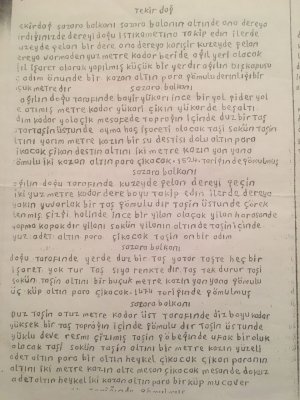 Tekir dağ
ekirdağ sazara balkanı sazara balanın altında ana dereya
indiğinizde dereyi doğu istikametino takip edin ilerde
kuzeyde gelen bir dere ana dereya karışır kuzeyde gelen
dereya varmadan yuz metre kadar beride ağıl yeri olacak
ağıl işaret olarak yapılmış küçük bir yer dir ağılın dış kapusu
adım önunde bir kazan altın para gömulu derinlığı bir
buçuk metre dır
sazara balkanı
ağılın doğu tarafında bayir yukarı ince bir yol gider yol
altmış metre kadar yukarı çikin yukorde başaltı
adım kadar yola çik mesapede toprağın içinde duz bir taş
var taşin üstunde ayma haç işoreti olacak taşi sokün taşin
altını yarım metre kazın bir su destisi dolu altın para
çıkacak çikan destin altını iki metre kazın yan yana
gömulu iki kazan altın para çikacak 1924 tarifinde gömulmuş
sazara balkanı
ağılın doğu tarafinda kuzeyde gelen dereyi geçin
iki yuz metre kadar dere boyu takip edin ilerde dereye
yakın yuvarlak bir taş gömulu dır taşin üstunde çörek
lenmiş çizgi halinde ince bir yilan olaçak yilan horasonda
yapma kapak dır yilanı sokün yilanın altında taşin içinde
yuz adet altın para çikacak taşin on bir adım
sazara balkanı
doğu tarafında yerde duz bir taş yatar taşte heç bir
işaret yok tur taş siya renkte dır taş tek durur taşi
sokün taşin altını bir buçuk metre kazın yan yana gömulu
üç küp altın para çıkacak 1924 tarifinde gömulmuş
sazara balkanı
Duz taşin otuz metre kadar ust tarafında diz boyu kadar
yüksek bir taş toprağın içinde gömulu dır taşin ustunde
yüklu deve resmi çizilmiş taşin göbeğinde ufak bir oluk
olacak taşi sokün taşin altını bir metre kazın yuzelli
adet altın para bir altın heykel çikacak çikan paranın
altını iki metre kazın alte mesan çikacak mesande dokuz
adet altın heykel iki kazan altın para bir küp mucaver